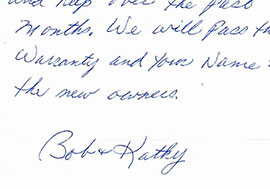 and help over the past
Months. We will Pass th
Warranty and your Name
the new owners.
Bob & Kathy